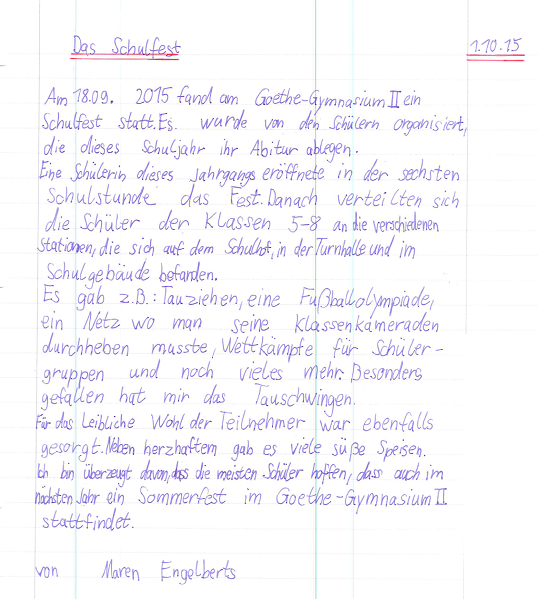 Das Schulfest 1.10.15
Am 18.09. 2015 fand am Goethe-Gymnasium II ein
Schulfest statt. Es wurde von den Schülern organisiert,
die dieses Schuljahr ihr Abitur ablegen.
Eine Schülerin dieses Jahrgangs eröffnete in der sechsten
Schulstunde das Fest. Danach verteilten sich
die Schüler der Klassen 5-8 an die verschiedenen
Stationen, die sich auf dem Schulhof, in der Turnhalle und im
Schulgebäude befanden.
Es gab z.B.: Tauziehen, eine Fußballolympiade,
ein Netz wo man seine Klassenkameraden
durchheben musste, Wettkämpfe für Schüler-
gruppen und noch vieles mehr. Besonders
gefallen hat mir das Tauschwingen.
Für das Leibliche Wohl der Teilnehmer war ebenfalls
gesorgt. Neben herzhaftem gab es viele süße Speisen.
Ich bin überzeugt davon, dass die meisten Schüler hoffen, dass auch im
nächsten Jahr ein Sommerfest im Goethe-Gymnasium II
stattfindet.
von Maren Engelberts